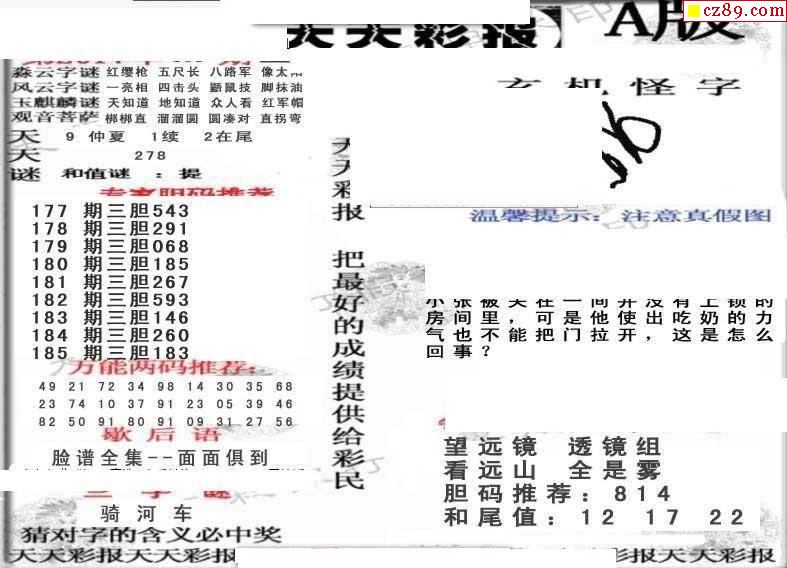 cz89.com
天天彩报】 A版
森云字谜 红缨枪 五尺长 八路军 像太阳
风云字谜 一亮相 四击头 鼯鼠技 脚抹油
玉麒麟谜 天知道 地知道 众人看 红军帽
观音菩萨 梆梆直 溜溜圆 圆凑对 直拐弯
天 9 仲夏 1续 2在尾
天 278
谜 和值谜 ：提
专家胆码推荐
177 期三胆543
178 期三胆291
179 期三胆068
180 期三胆185
181 期三胆267
182 期三胆593
183 期三胆146
184 期三胆260
185 期三胆183
万能两码推荐：
49 21 72 34 98 14 30 35 68
23 74 10 37 91 23 05 39 46
82 50 91 80 91 09 31 27 56
歇后语
脸谱全集--面面俱到
三字谜
骑河车
猜对字的含义必中奖
天天彩报天天彩报天天彩报
天天彩报 把最好的成绩提供给彩民
玄机怪字
温馨提示：注意真假图
小张被关在一间并没有上锁的
房间里，可是他使出吃奶的力
气也不能把门拉开，这是怎么
回事？
望远镜 透镜组
看远山 全是雾
胆码推荐：814
和尾值：12 17 22
彩报天天彩报